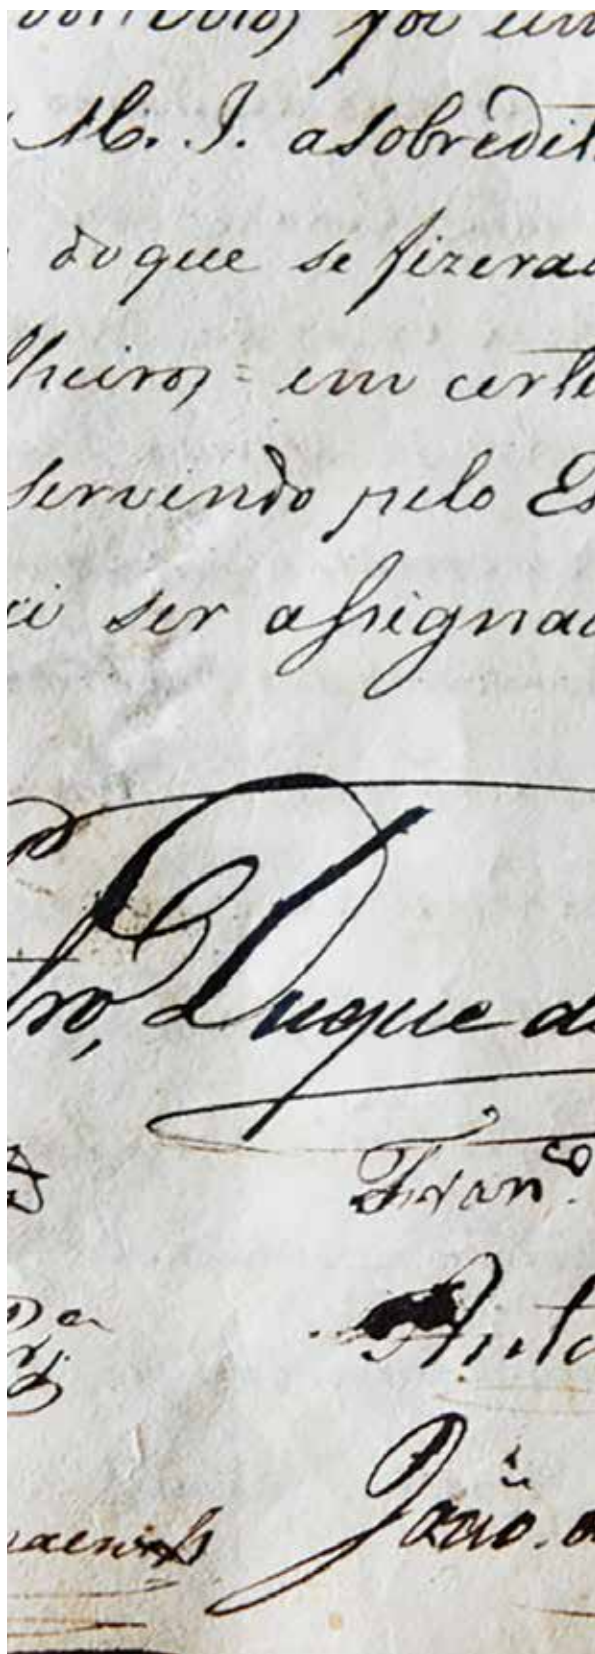 foi em
M. I. a Sobredit
do que se fizerao
lheiros = em certe
servindo pelo Es
ser assignad
dro, Duque de
Fran.co
Anto
João. d